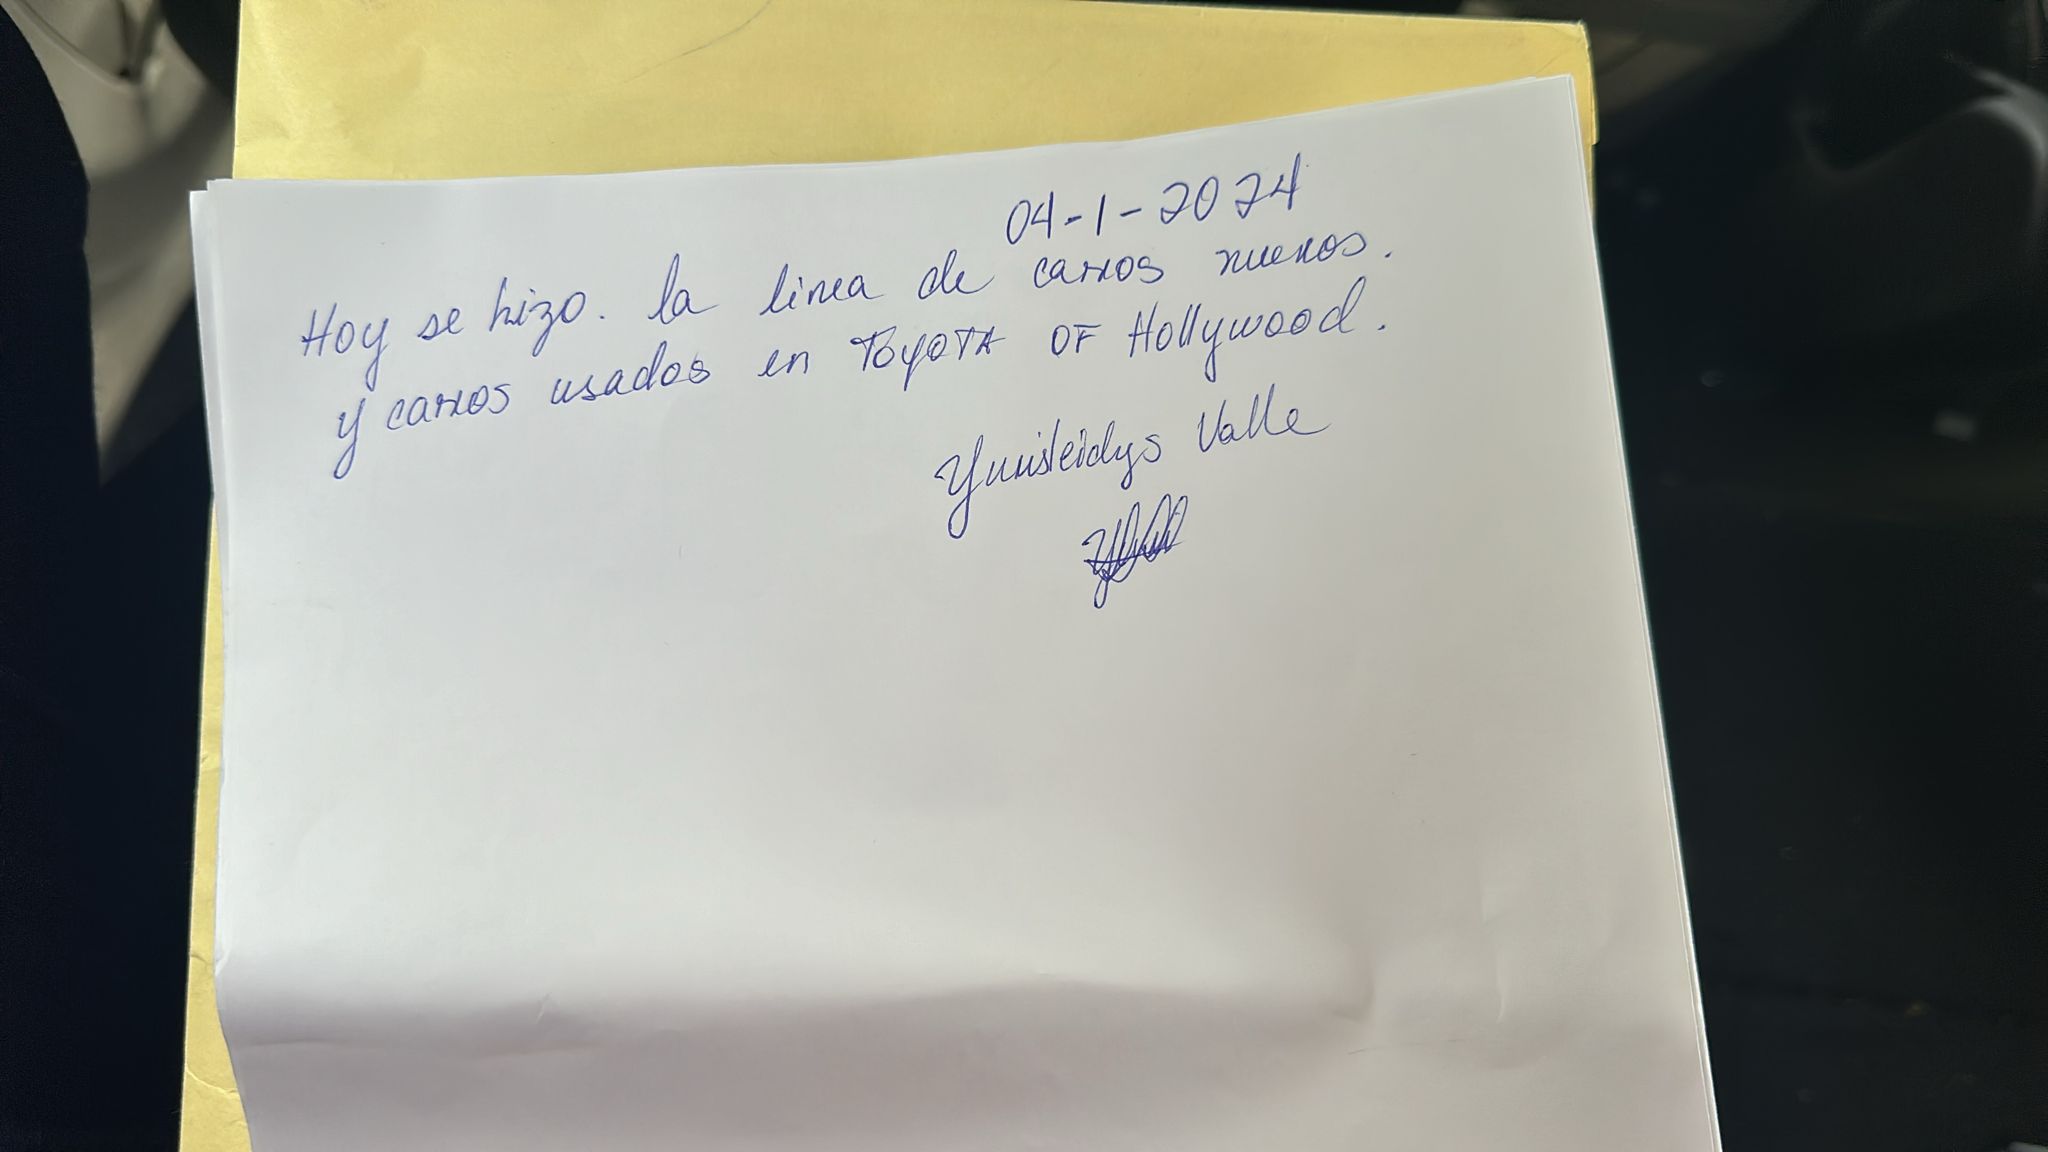 04-1-2024
Hoy se hizo. la linea de carros nuevos.
y carros usados en TOYOTA OF Hollywood.
Yunisleidys Valle